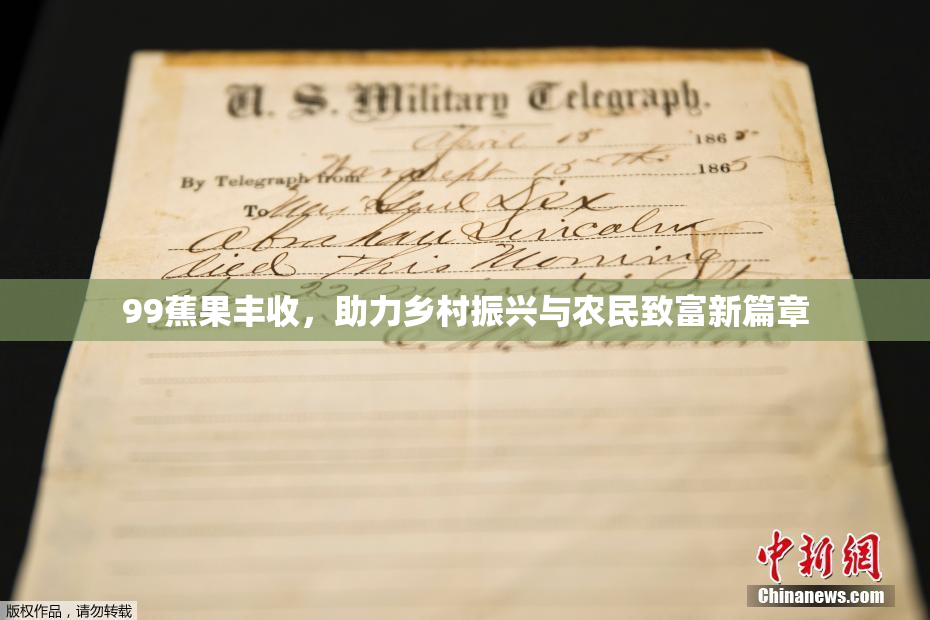 U. S. Military Telegraph.
April 15 1865
By Telegraph from War Dept 15th 1865
To Maj Genl Dix
Abraham Lincoln
died This Morning
at 22 minutes after
99蕉果丰收，助力乡村振兴与农民致富新篇章
E. M. Stanton
中新网
Chinanews.com
版权作品，请勿转载